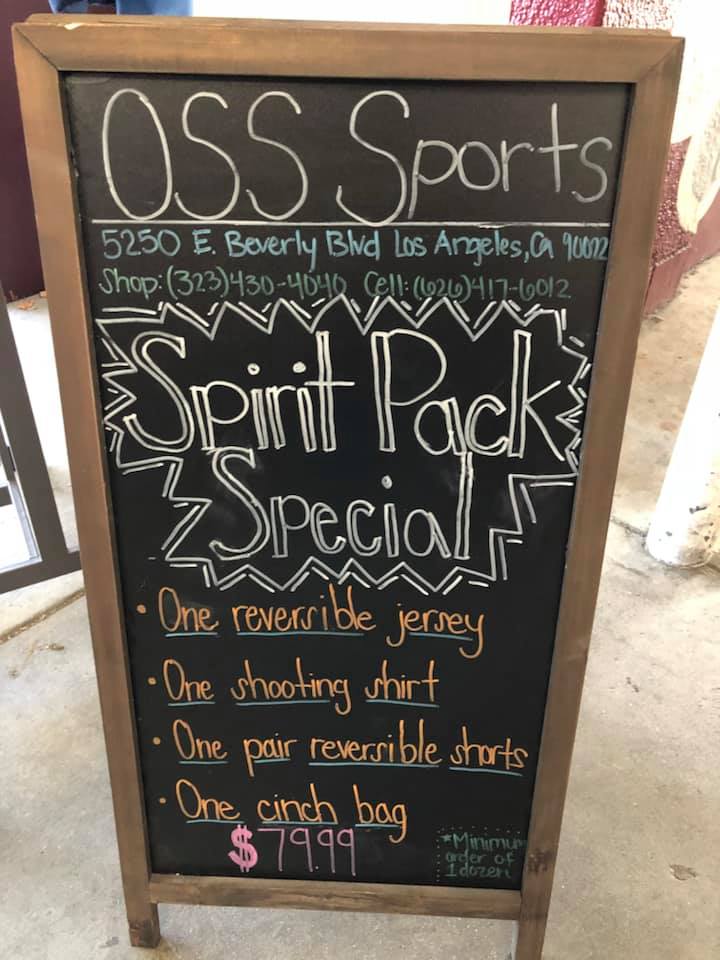 OSS Sports
5250 E. Beverly Blvd Los Angeles, Ca 90022
Shop: (323)430-4040 Cell: (626)417-6012
Spirit Pack
Special
• One reversible jersey
• One shooting shirt
• One pair reversible shorts
• One cinch bag
$79.99
*Minimum
order of
1 dozen